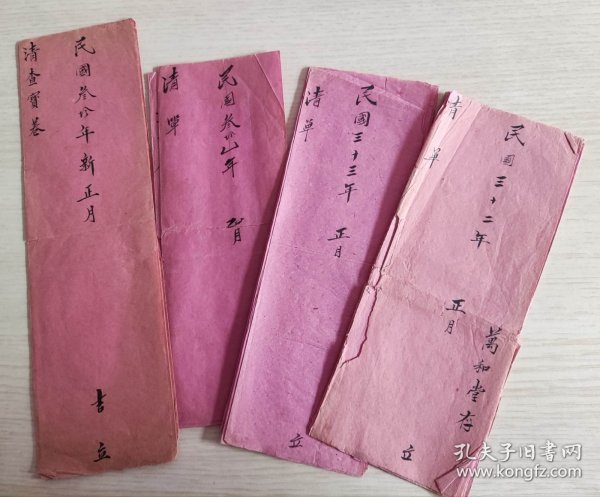 民國叁拾年新正月
吉立
清查寶卷
民國叁拾乙年
正月
清單
民國三十三年
正月
立
清单
民國三十二年
正月
立
萬和堂存
清单
孔夫子旧书网
www.kongfz.com